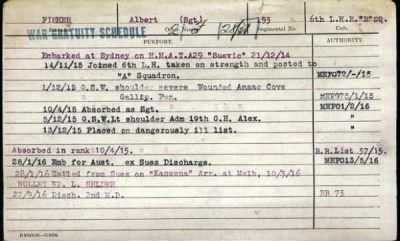 FISHER Albert (Sgt) 193 6th L.H.R."B"SQ.
WAR GRATUITY SCHEDULE
PURPOSE. Unit. AUTHORITY.
Embarked at Sydney on H.M.A.T.A29 "Suevic" 21/12/14
14/11/15 Joined 6th L.H. taken on strength and posted to
"A" Squadron. MEF072/-/15
1/12/15 G.S.W. shoulder severe Wounded Anzac Cove
Gallip. Pen. MEF975/1/15
10/4/15 Absorbed as Sgt. MEF01/2/16
5/12/15 G.S.W.Lt shoulder Adm 19th G.H. Alex. "
13/12/15 Placed on dangerously ill list. "
Absorbed in rank 10/4/15. B.R.List 37/15.
28/1/16 Emb for Aust. ex Suez Discharge. MEF013/5/16
28/1/16 Retted from Suez on "Kanowna" Arr. at Melb, 10/3/16
BULLET WD. L. SHLDER
22/9/16 Disch. 2nd M.D. ER 73